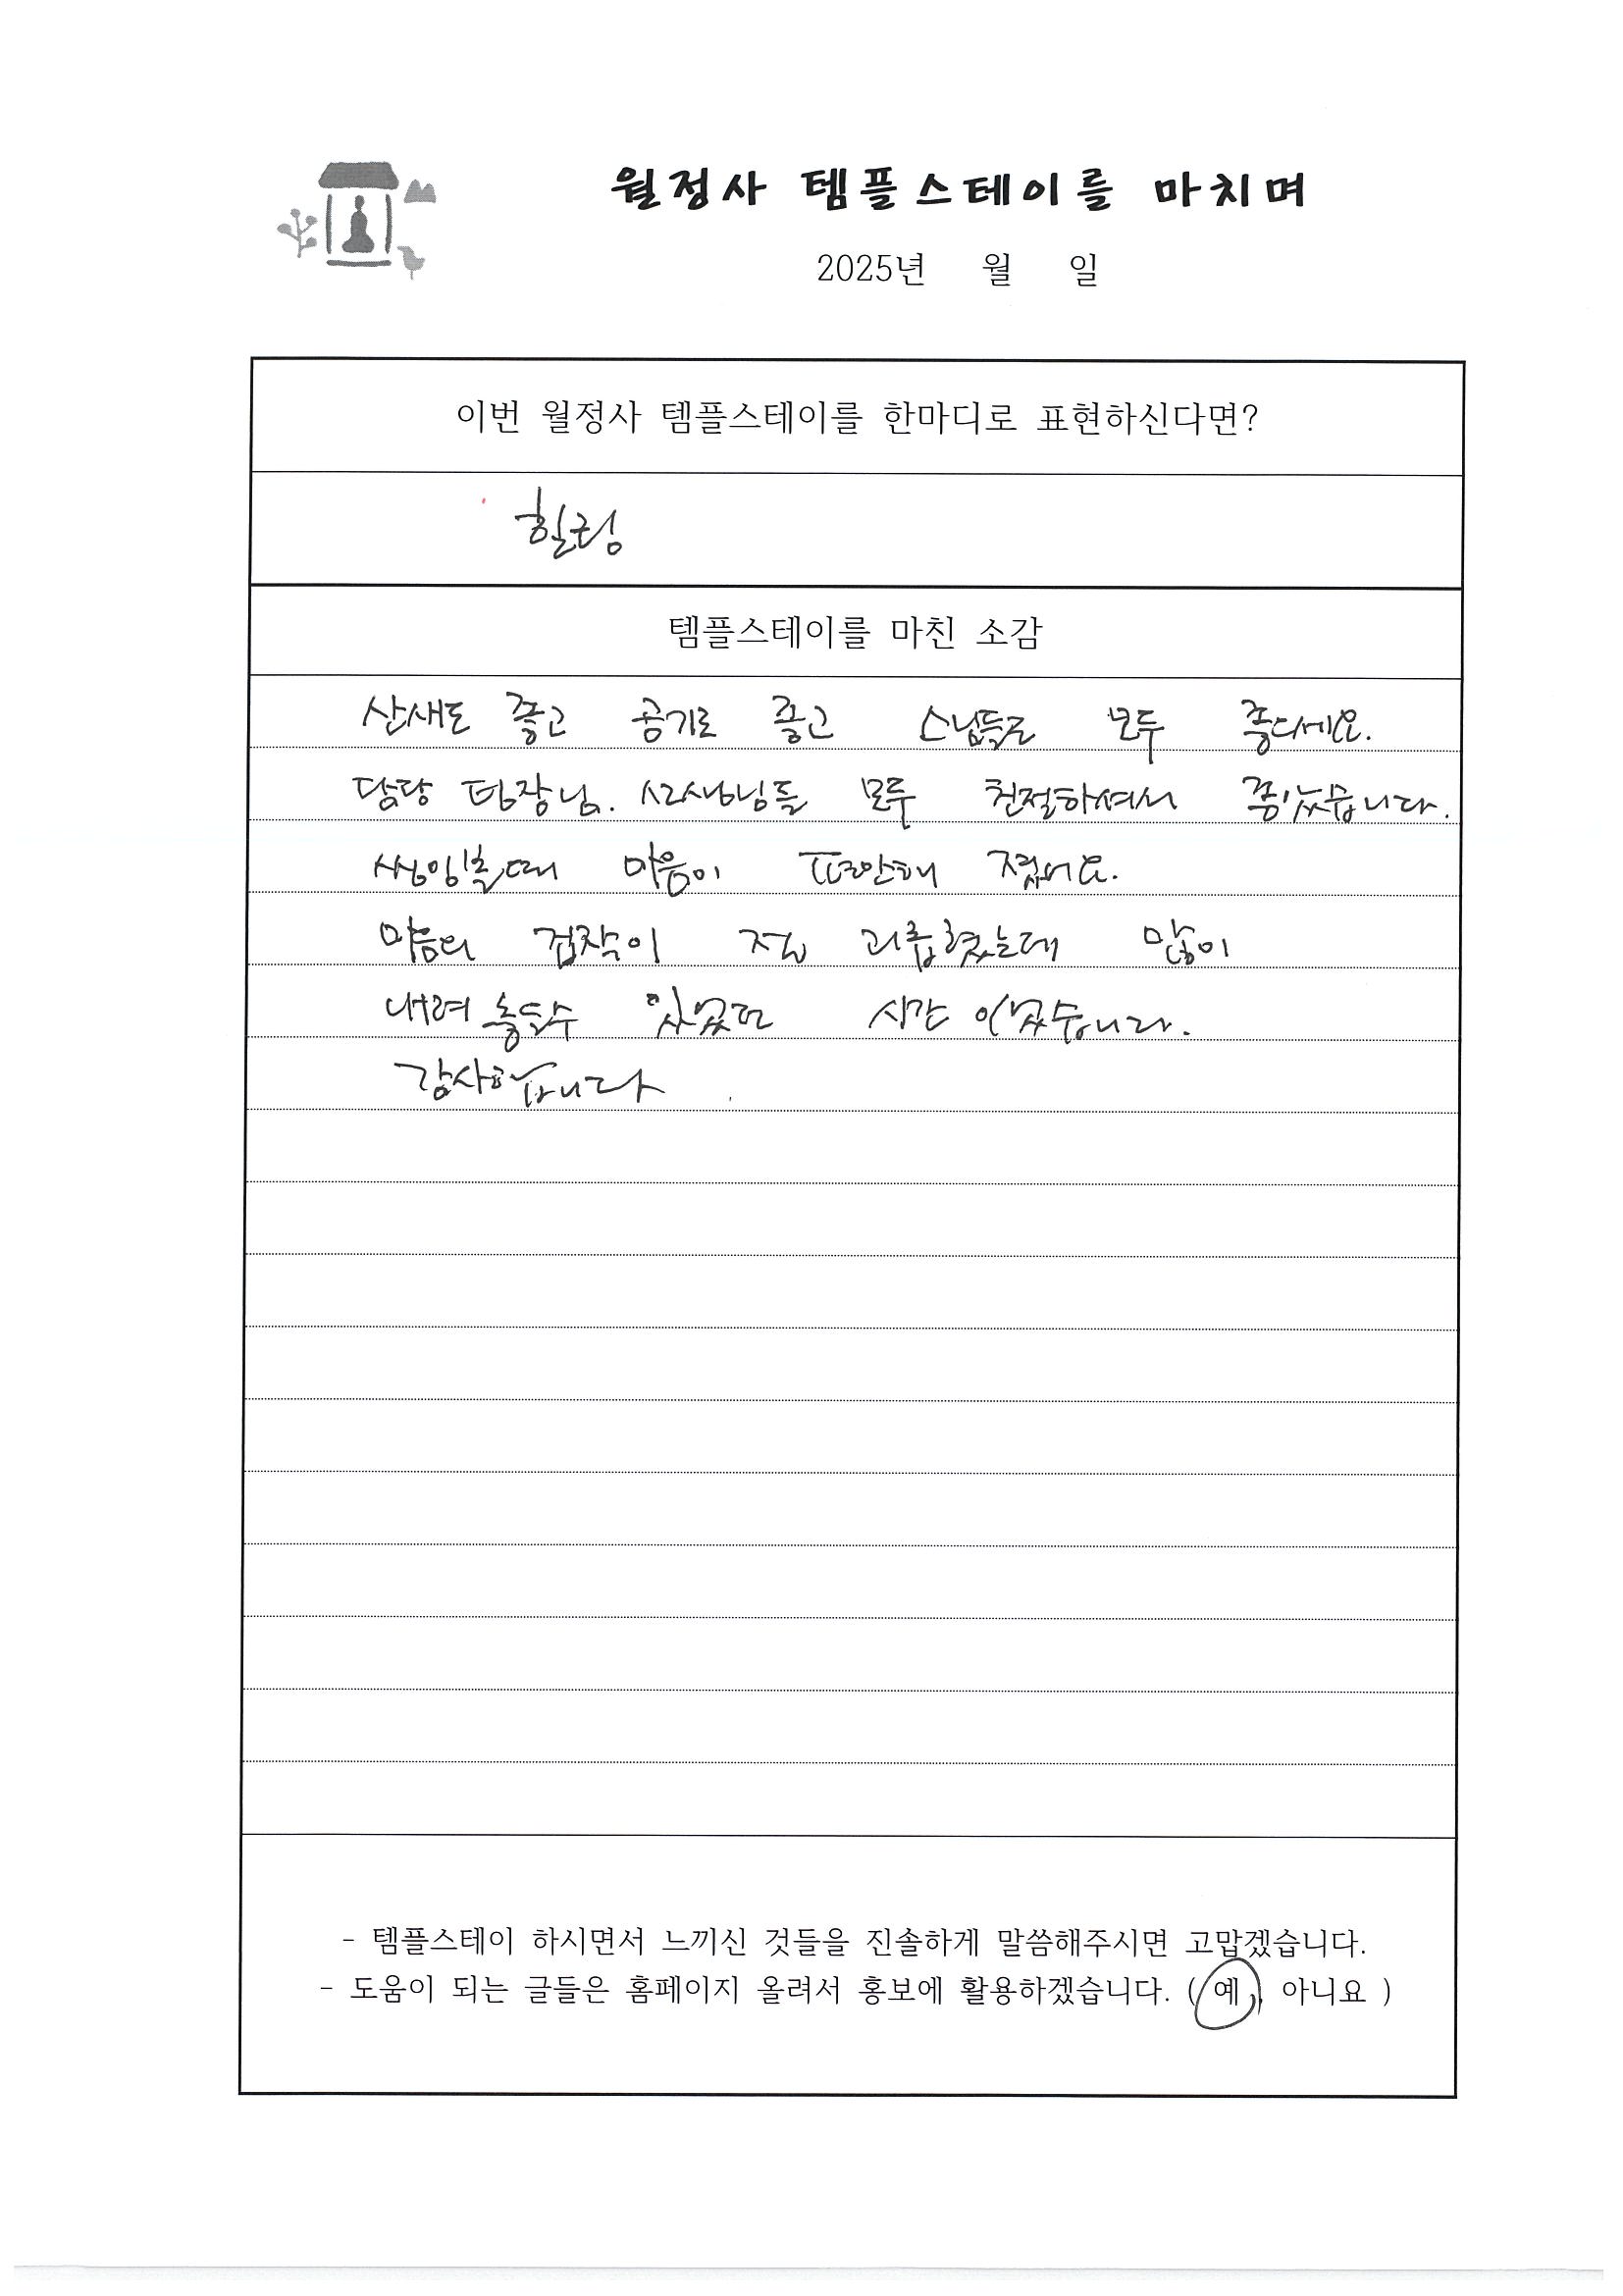 월정사 템플스테이를 마치며
2025년 월 일
이번 월정사 템플스테이를 한마디로 표현하신다면?
힐링
템플스테이를 마친 소감
산새도 좋고 공기도 좋고 스님들도 모두 좋으세요.
담당 팀장님. 선생님들 모두 친절하셔서 좋았습니다.
마음이 편안해 졌어요.
마음의 집착이 괴롭혔는데 많이
내려 놓을수 있었던 시간 이었습니다.
감사합니다
- 템플스테이 하시면서 느끼신 것들을 진솔하게 말씀해주시면 고맙겠습니다.
- 도움이 되는 글들은 홈페이지 올려서 홍보에 활용하겠습니다. ( 예, 아니요 )